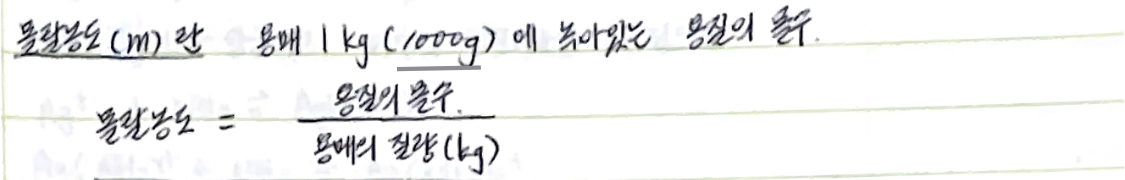 몰랄농도(m)란 용매 1kg (1000g)에 녹아있는 용질의 몰수.
몰랄농도 = 용질의 몰수. / 용매의 질량(kg)